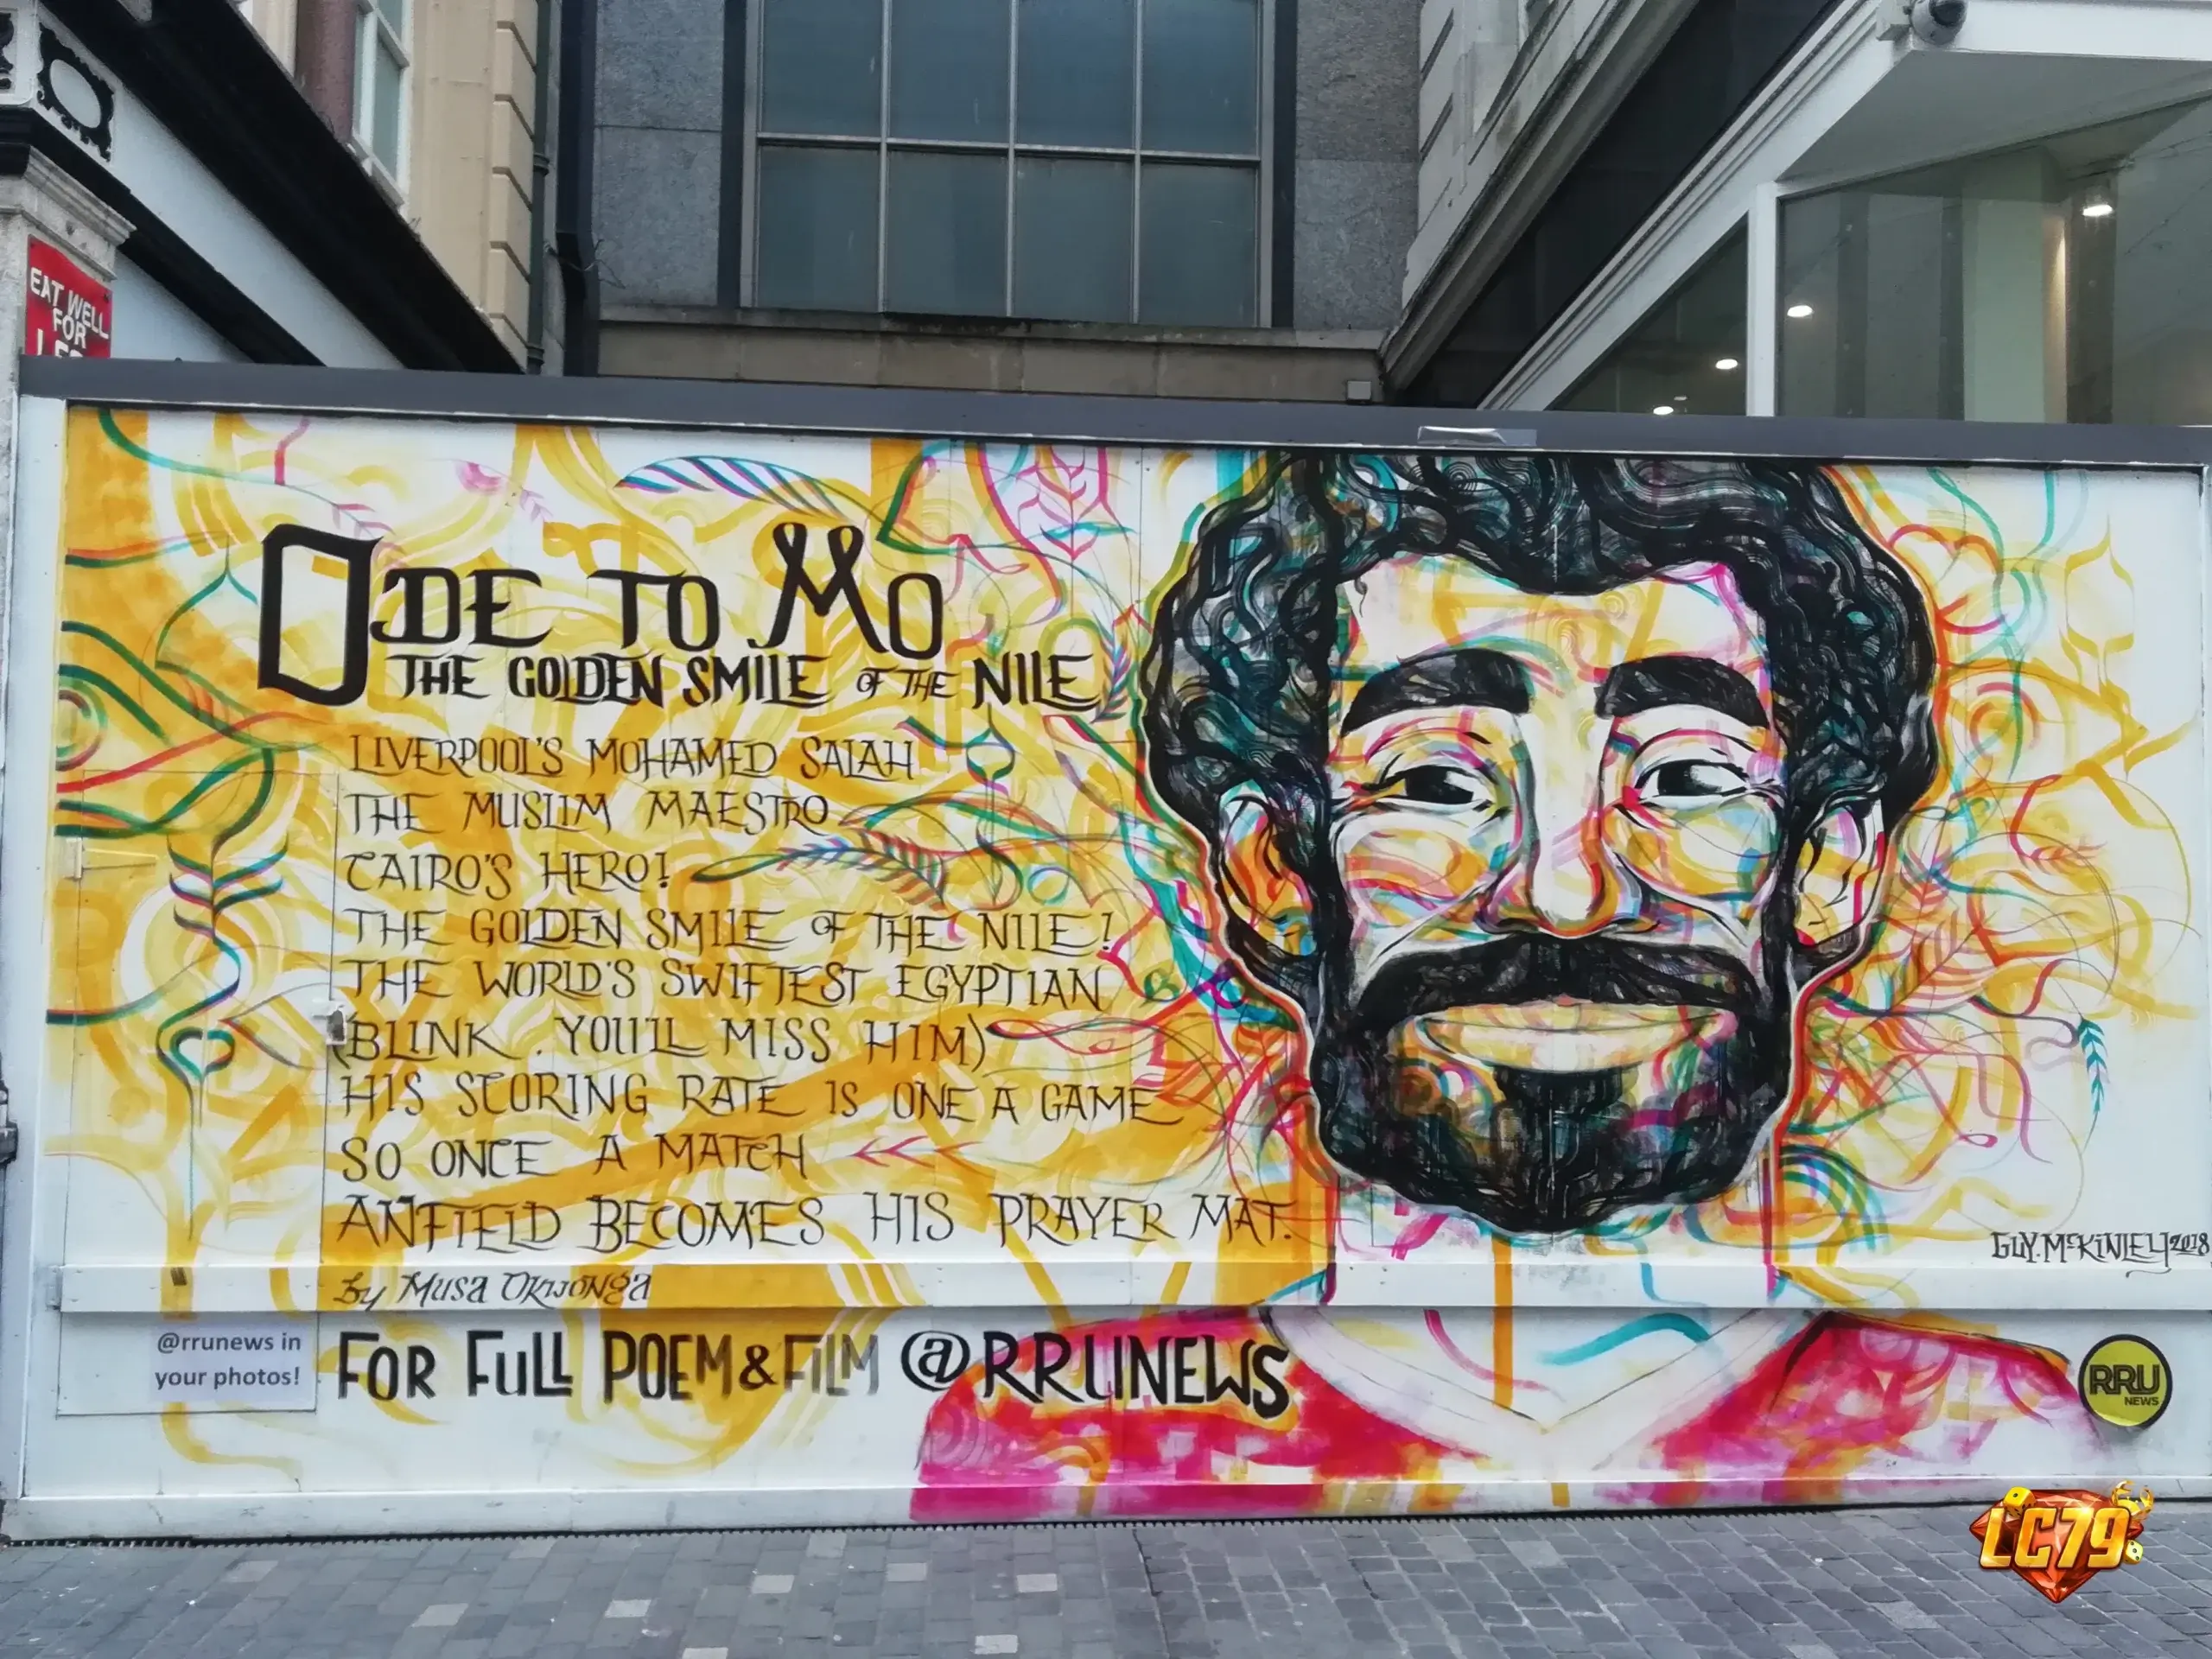 EAT WELL
FOR
ODE TO MO
THE GOLDEN SMILE OF THE NILE
LIVERPOOL'S MOHAMED SALAH
THE MUSLIM MAESTRO
CAIRO'S HERO!
THE GOLDEN SMILE OF THE NILE!
THE WORLD'S SWIFTEST EGYPTIAN
(BLINK. YOU'LL MISS HIM)
HIS SCORING RATE IS ONE A GAME
SO ONCE A MATCH
ANFIELD BECOMES HIS PRAYER MAT.
by Musa Okwonga
GUY.McKINLEY 2018
@rrunews in
your photos!
FOR FULL POEM & FILM @RRUNEWS
RRU
NEWS
LC79